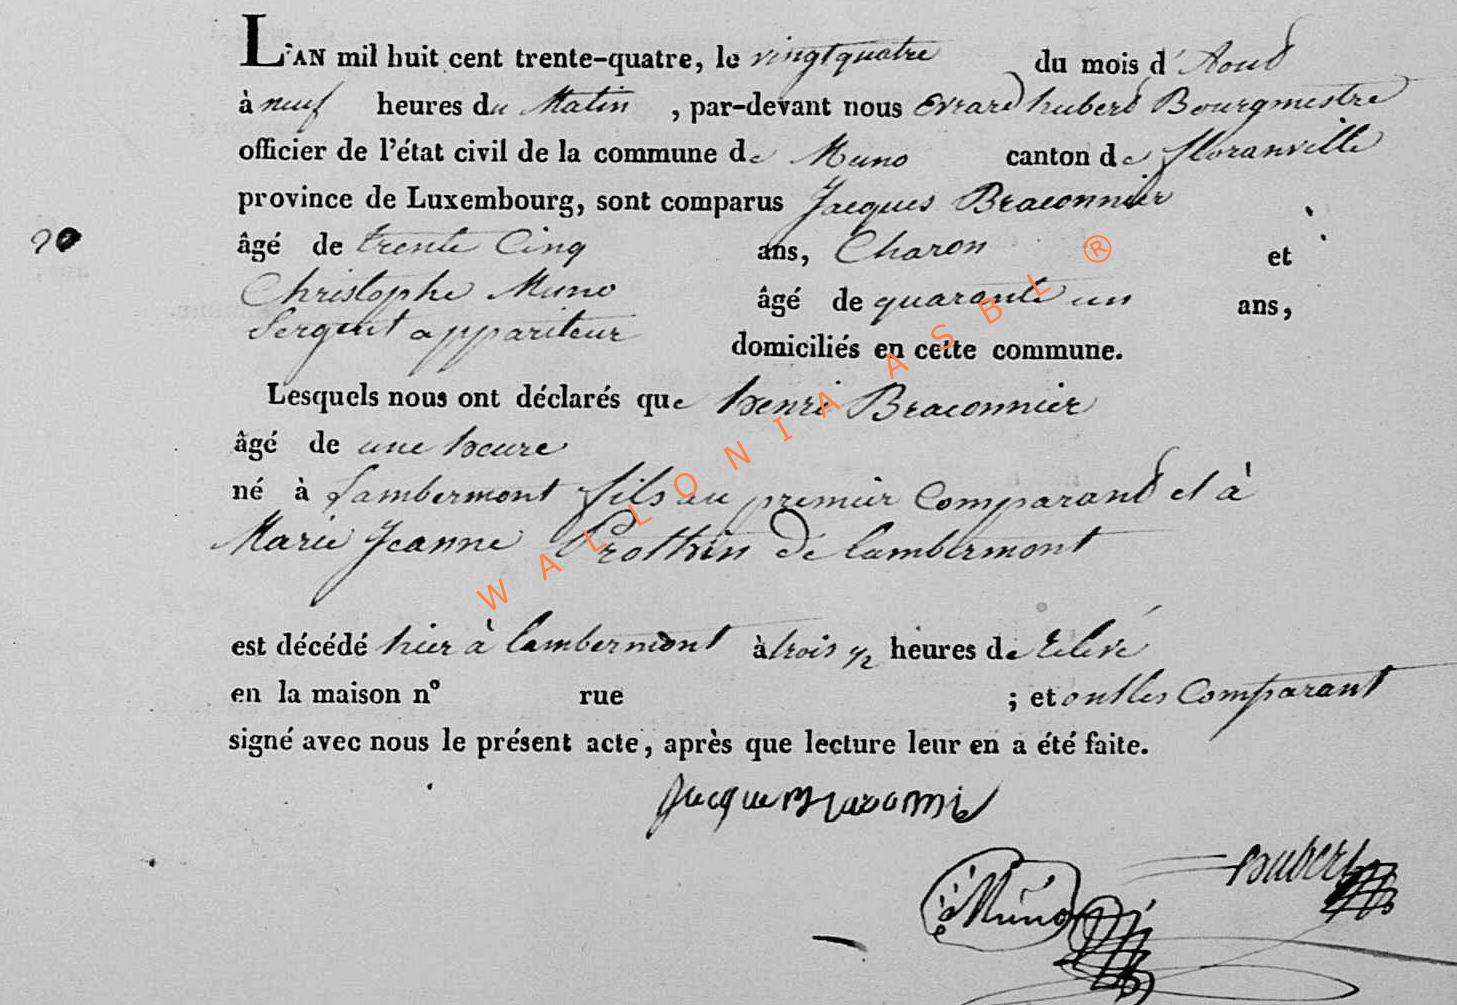 L'AN mil huit cent trente-quatre, le vingt quatre du mois d'Aoud
à neuf heures du Matin, par-devant nous Evrard hubert Bourgmestre
officier de l'état civil de la commune de Muno canton de floranville
province de Luxembourg, sont comparus Jacques Braconnier
20 âgé de trente Cinq ans, Charon et
Christophe Muno âgé de quarante un ans,
Sergent appariteur domiciliés en cette commune.
Lesquels nous ont déclarés que henri Braconnier
âgé de une heure
né à Lambermont fils au premier Comparand et à
Marie Jeanne Prothin De Lambermont
est décédé hier à Lambermont à trois ½ heures de
en la maison n° rue ; et ont les Comparant
signé avec nous le présent acte, après que lecture leur en a été faite.
Muno
hubert
WALLONIA ASBL ®